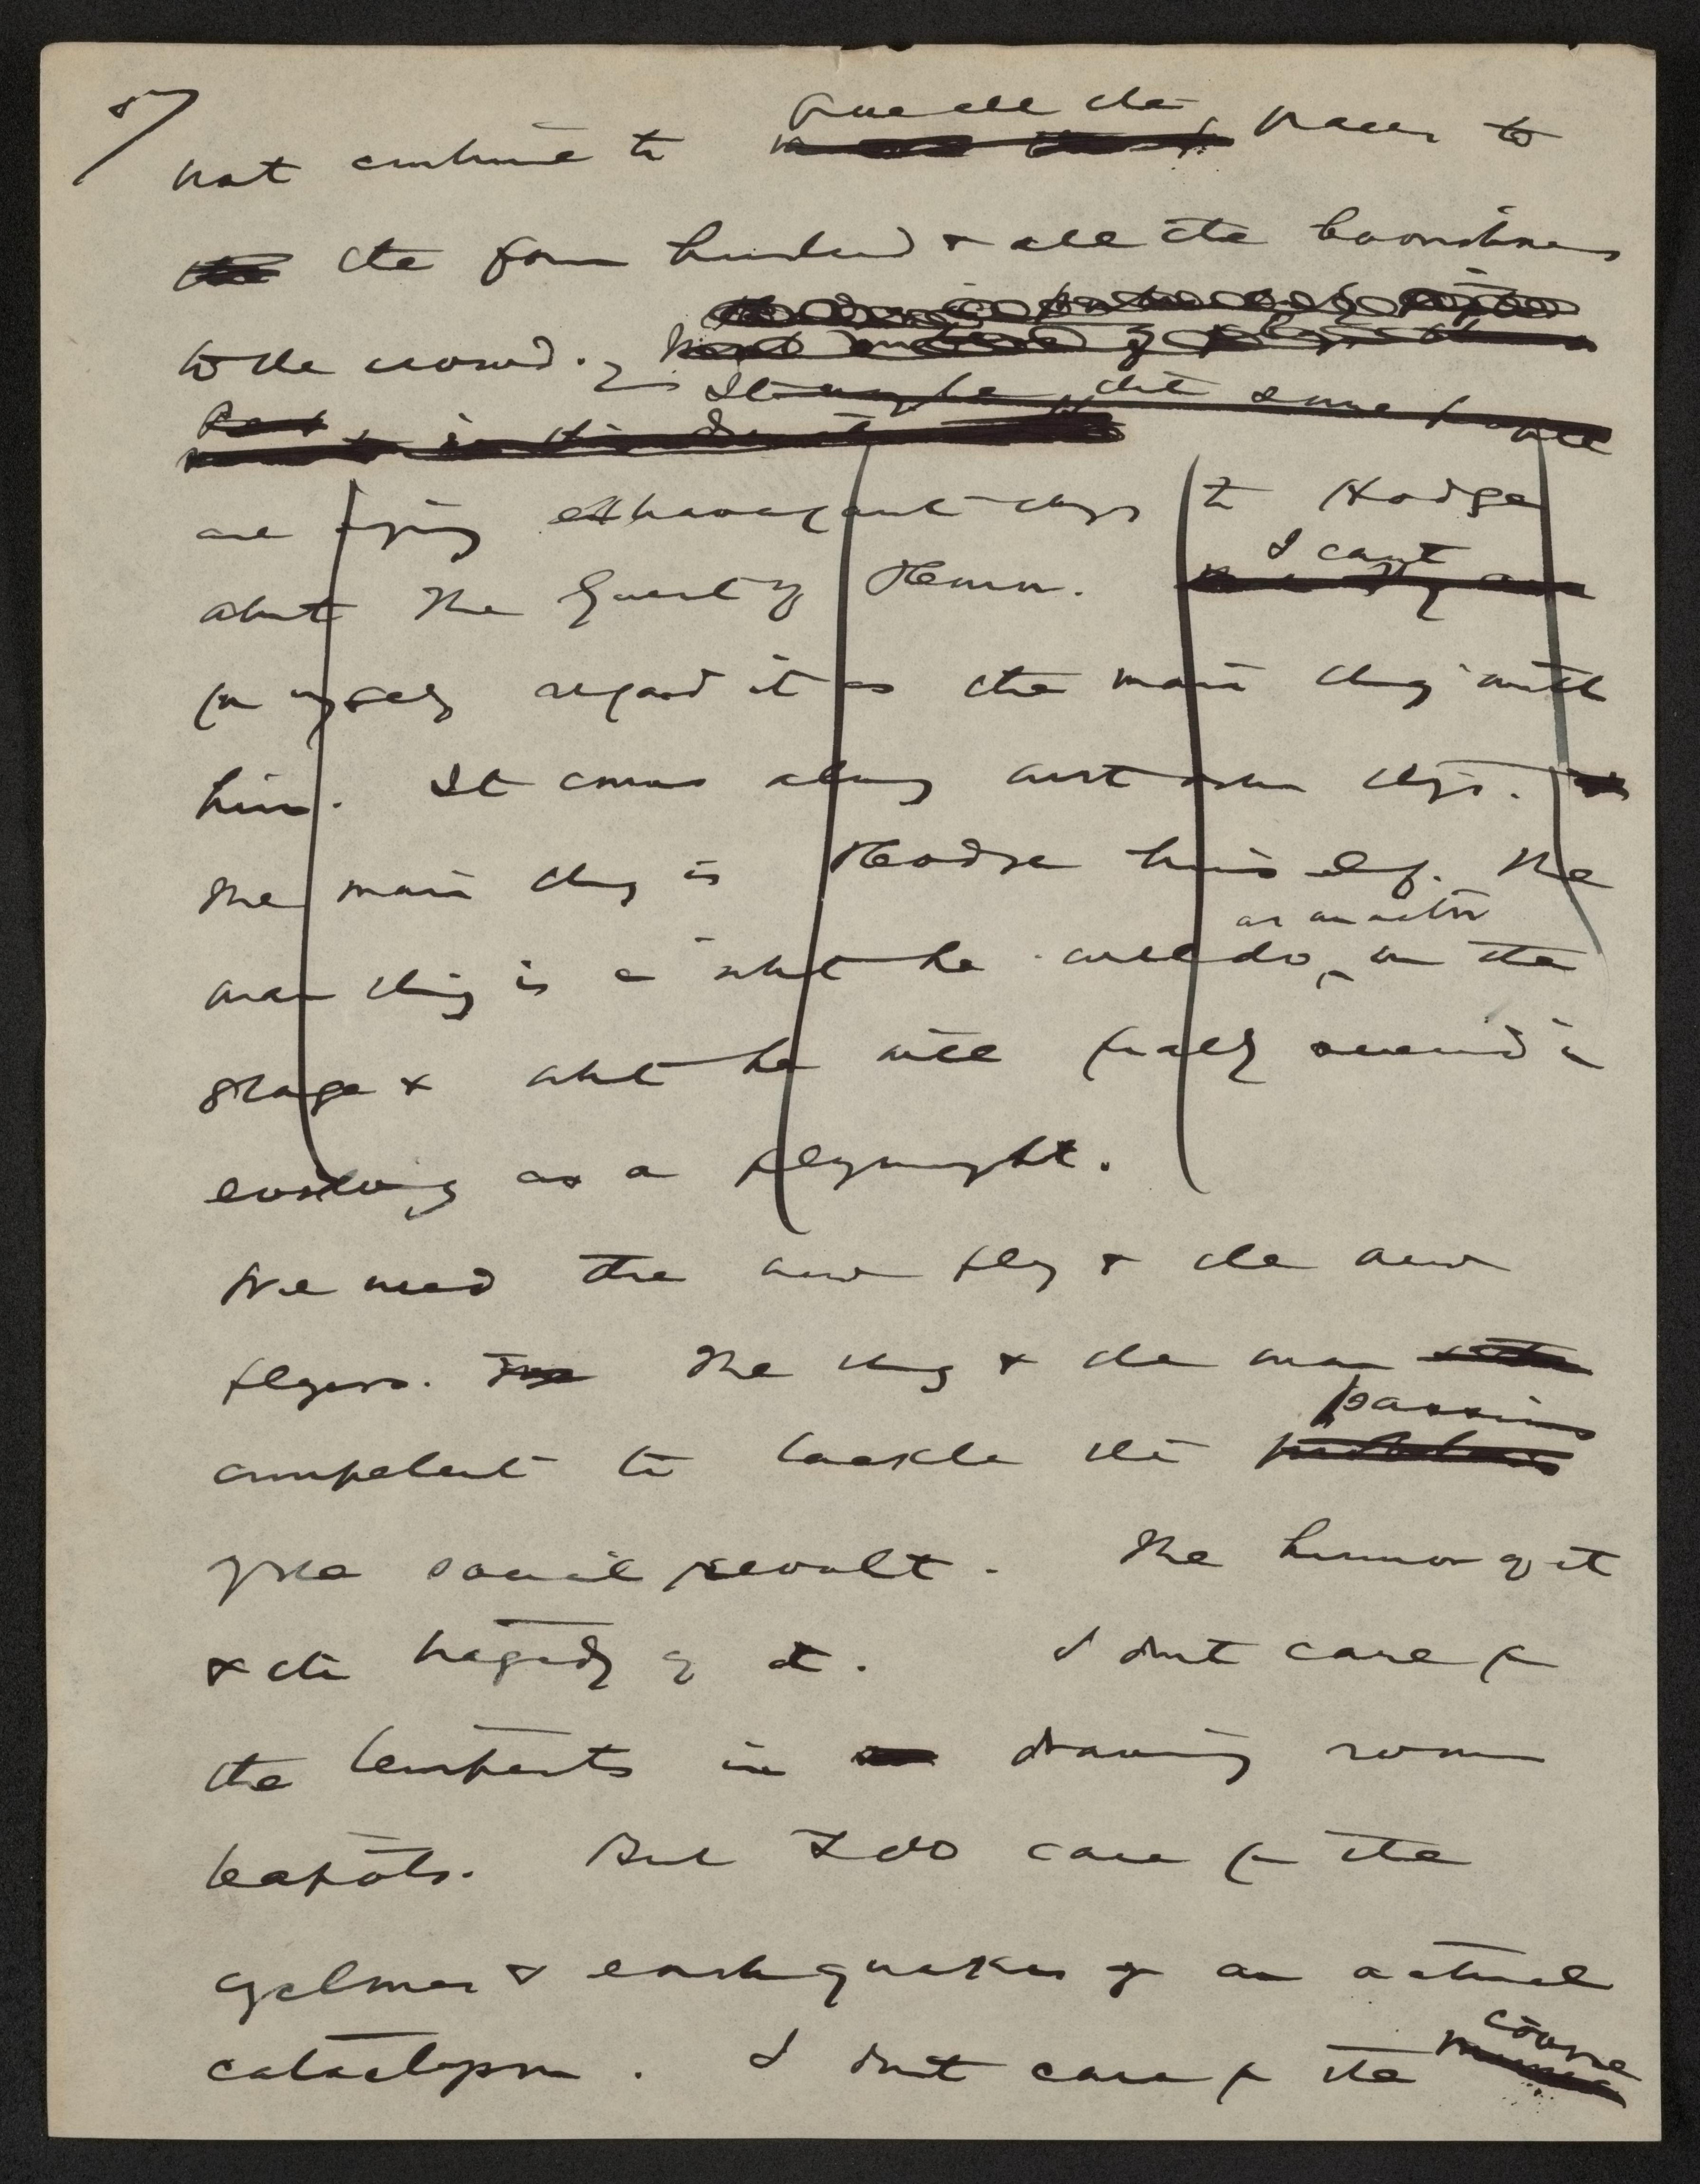 5/
give all the graces to
not continue to
the four hundred & all the boorishness
to the crowd.
It may be that some people
are saying extravagant things to Hodge
about The Guest of Honor. I can't
for myself regard it as the main thing with
him. It comes along with other things.
The main thing is Hodge himself. The
as an actor
main thing is in what he will do on the
stage & what he will finally succeed in
evolving as a playwright.
We need the new play & the new
players. The thing & the man
passing
competent to tackle the
of the social revolt. The humor of it
& the tragedy of it. I dont care for
the tempests in drawing room
teapots. But I do care for the
cyclones & earthquakes of an actual
coarse
cataclysm. I dont care for the